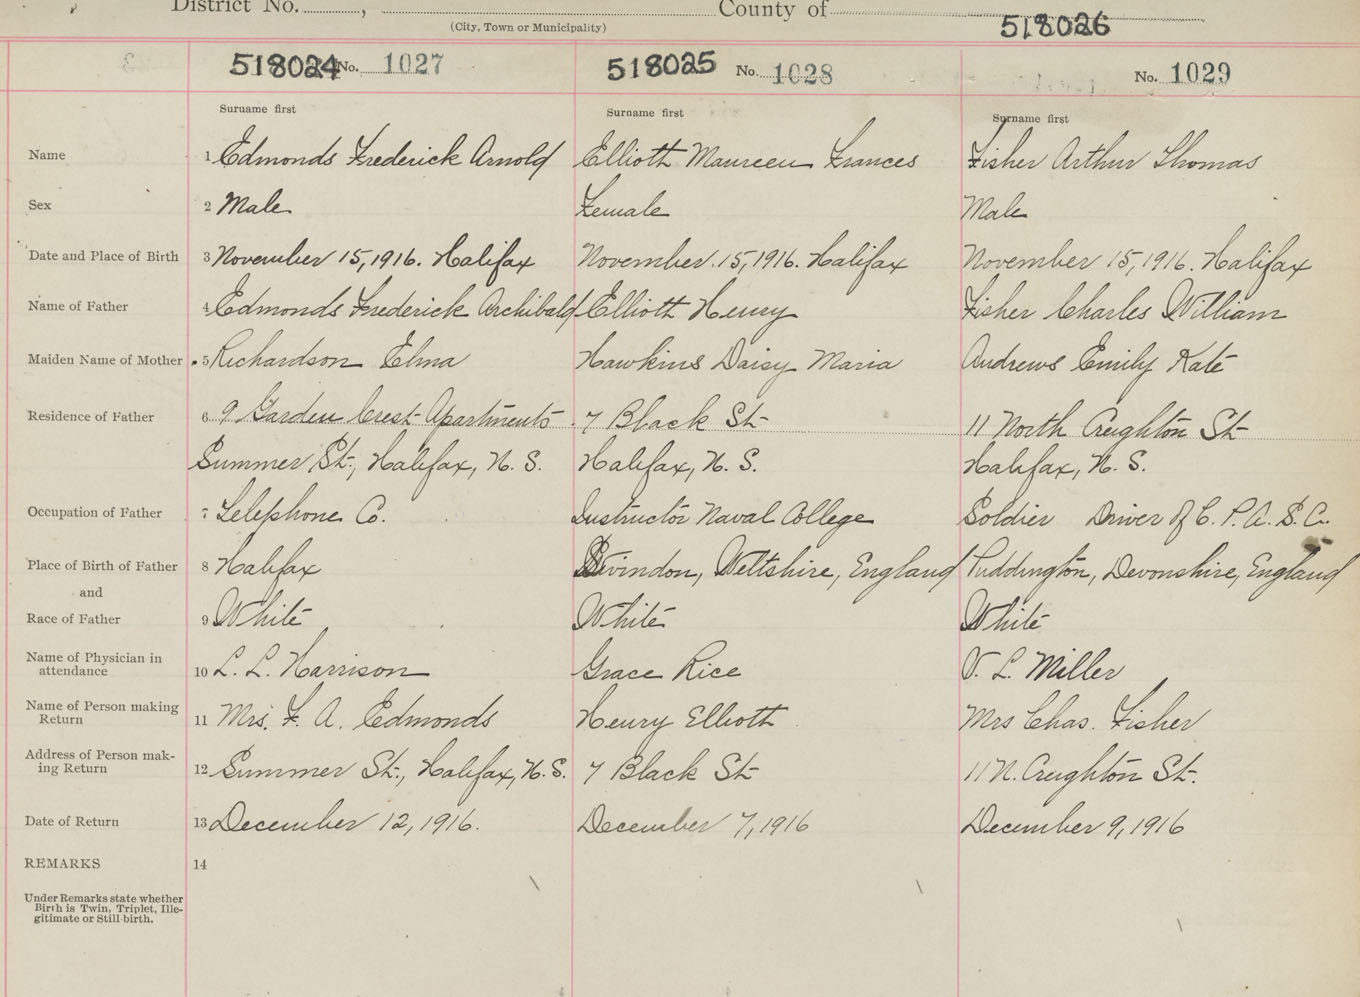 District No. , County of
(City, Town or Municipality)
518024 No. 1027 518025 No. 1028 518026 No. 1029
Surname first Surname first Surname first
Name 1 Edmonds Frederick Arnold Elliott Maureen Frances Fisher Arthur Thomas
Sex 2 Male Female Male
Date and Place of Birth 3 November 15, 1916. Halifax November 15, 1916. Halifax November 15, 1916. Halifax
Name of Father 4 Edmonds Frederick Archibald Elliott Henry Fisher Charles William
Maiden Name of Mother 5 Richardson Elma Hawkins Daisy Maria Andrews Emily Kate
Residence of Father 6 9 Garden Crest Apartments 7 Black St 11 North Creighton St
Summer St., Halifax, N. S. Halifax, N. S. Halifax, N. S.
Occupation of Father 7 Telephone Co. Instructor Naval College Soldier Driver of C. P. A. S. C.
Place of Birth of Father 8 Halifax Swindon, Wiltshire, England Puddington, Devonshire, England
and
Race of Father 9 White White White
Name of Physician in attendance 10 L. L. Harrison Grace Rice V. L. Miller
Name of Person making Return 11 Mrs. F. A. Edmonds Henry Elliott Mrs Chas. Fisher
Address of Person making Return 12 Summer St., Halifax, N. S. 7 Black St 11 N. Creighton St.
Date of Return 13 December 12, 1916. December 7, 1916 December 9, 1916
REMARKS 14
Under Remarks state whether
Birth is Twin, Triplet, Ille-
gitimate or Still-birth.